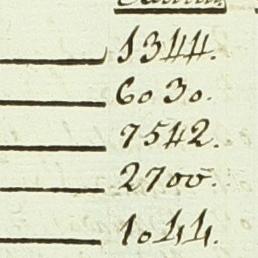 1344.
6030.
7542.
2700.
1044.